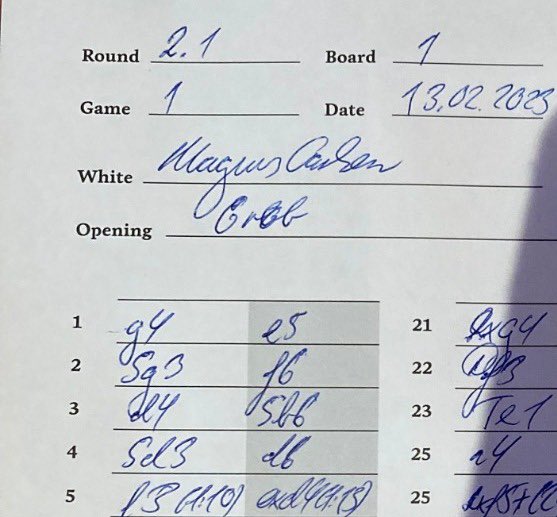 Round 2.1 Board 1
Game 1 Date 13.02.2023
White Magnus Carlsen
Opening Grob
1 g4 e5 21
2 Sg3 f6 22
3 d4 Sb6 23 Te1
4 Sd3 d6 25
5 f3 (1:10) exd4 (1:15) 25